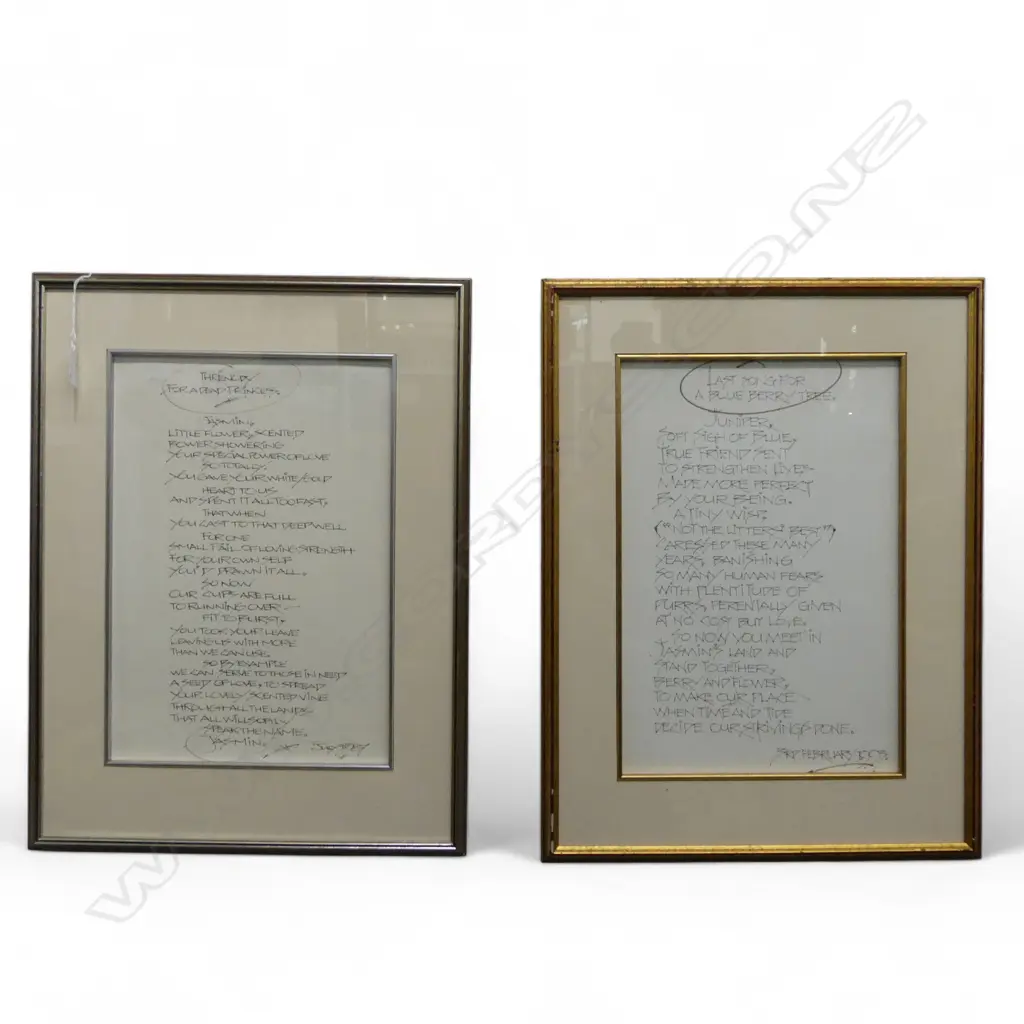 THRENODY
FOR A DEAD PRINCESS
JASMIN,
LITTLE FLOWER, SCENTED
BOWER SHOWERING
YOUR SPECIAL POWER OF LOVE
SO TOTALLY.
YOU GAVE YOUR WHITE/GOLD
HEART TO US
AND SPENT IT ALL TOO FAST,
THAT WHEN
YOU CAST TO THAT DEEP WELL
FOR ONE
SMALL PAIL OF LOVING STRENGTH
FOR YOUR OWN SELF
YOU'D DRAWN IT ALL.
SO NOW
OUR CUPS ARE FULL
TO RUNNING OVER —
FIT TO BURST.
YOU TOOK YOUR LEAVE
LEAVING US WITH MORE
THAN WE CAN USE.
SO BY EXAMPLE
WE CAN SERVE TO THOSE IN NEED
A SEED OF LOVE, TO SPREAD
YOUR LOVELY SCENTED VINE
THROUGH ALL THE LANDS
THAT ALL WILL SOFTLY
SPEAK THE NAME.
JASMIN.
LAST SONG FOR
A BLUE BERRY TREE.
JUNIPER,
SOFT SIGH OF BLUE,
TRUE FRIEND SENT
TO STRENGTHEN LIVES
MADE MORE PERFECT
BY YOUR BEING.
A TINY WISP,
("NOT THE LITTERS' BEST")
CARESSED THESE MANY
YEARS, BANISHING
SO MANY HUMAN FEARS
WITH PLENTITUDE OF
PURRS, PERENIALLY GIVEN
AT NO COST BUT LOVE.
SO NOW YOU MEET IN
JASMIN'S LAND AND
STAND TOGETHER,
BERRY AND FLOWER,
TO MAKE OUR PLACE
WHEN TIME AND TIDE
DECIDE OUR STRIVINGS DONE.
3RD FEBRUARY